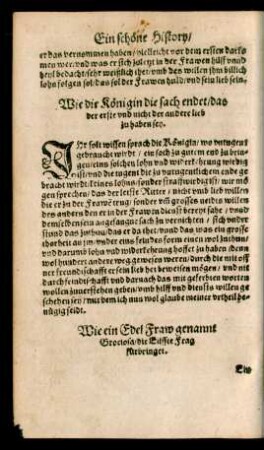 Ein schöne History/
er das vernommen haben/ vielleicht vor dem ersten darkommen wer/vnd was er sich zoletzt in der Frawen hülff vnnd
heyl bedacht/sehr weißlich thet/vmb des willen jhm billich
lohn folgen sol/das sol der Frawen huld/vnd sein lieb sein.
Wie die Königin die sach endet/das
der erste vnd nicht der andere lieb
zu haben sey.
JHr solt wissen sprach die Königin/wo vntugent
gebraucht wirdt/ ein sach zu gutem end zu bringen/
eins solchen lohn vnd widerkehrung wirdig
ist/vnd die tugent die zu vntugentlichem ende gebracht
wirdt/keines lohns/sonder straffwirdig ist/wir mögen
sprechen/das der letste Ritter/nicht vmb lieb willen
die er zu der Frawē trug/sonder vm̄ grosses neidts willen
des andern den er in der Frawen dienst bereyt sahe/vnnd
demselben sein angefangne sach zu vernichten/sich vnderstund
das zuthun/das er da thet/vnd das was ein grosse
thorheit an jm/vnder eins feinden form einen wol zuthun/
vnd darumb lohn vnd widerkehrung hoffet zu haben/denn
wol hundert andere weg gewesen weren/durch die mit offner
freundtschafft er sein lieb her beweisen mögen/vnd nit
durch feindtschafft vnd darnach das mit geferbten worten
wollen zuuerstehen geben/vmb hülff vnd diensts willen geschehen
sey/mit dem ich nun wol glaube meiner vrtheil benügig
seidt.
Wie ein Edel Fraw genannt
Graciosa/die Eilffte Frag
fürbringet.
Ein